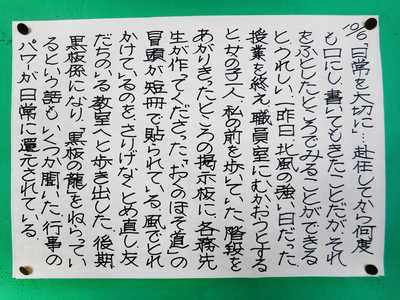 10/6「日常を大切に」、赴任してから何度
も口にし、書いてもきたことだが、それ
をふとしたところでみることができる
とうれしい。一昨日、北風の強い日だった。
授業を終え、職員室にむかおうとする
と、女の子一人、私の前を歩いていた。階段を
あがりきったところの掲示板に、各務先
生が作ってくださった、「おくのほそ道」の
冒頭が短冊で貼られている。風でとれ
かけているのを、さりげなくとめ直し、友
だちのいる教室へと歩き出した。後期
黒板係になり、「黒板の龍」をねらってい
るという話もいくつか聞いた。行事の
パワーが日常に還元されている。